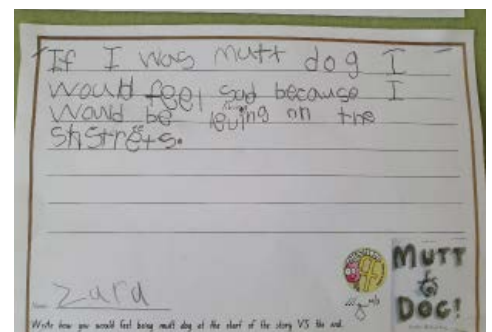 If I was mutt dog I
would feel sad because I
would be leuing on the
shstrets.
Name: Zara
MUTT
DOG!
Write how you would feel being mutt dog at the start of the story VS the end.